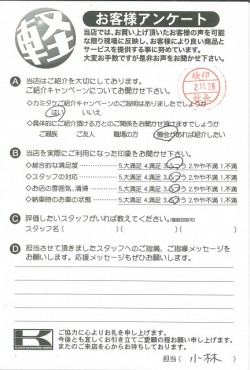 軽
お客様アンケート
当店では、お買い上げ頂いたお客様の声を可能
な限り現場に反映し、お客様により良い商品と
サービスを提供する事に努めています。
大変お手数ですが是非お声をお聞かせ下さい。
A 当店はご紹介を大切にしております。
ご紹介キャンペーンについてお聞かせ下さい。
検印
2.11.28
◇カミタケご紹介キャンペーンのご説明はありましたでしょうか
はい いいえ
◇具体的にご紹介頂ける方とのご関係をお聞かせ頂けますでしょうか
ご親族 ご友人 職場の方 機会があれば紹介したい
B 当店を実際にご利用になった印象をお聞かせ下さい。
◇総合的な満足度 5.大満足 4.満足 3.ふつう 2.やや不満 1.不満
◇スタッフの対応 5.大満足 4.満足 3.ふつう 2.やや不満 1.不満
◇お店の雰囲気、清掃 5.大満足 4.満足 3.ふつう 2.やや不満 1.不満
◇納車時のお車の状態 5.大満足 4.満足 3.ふつう 2.やや不満 1.不満
C 評価したいスタッフがいれば教えてください。
スタッフ名( )( )( )
D 担当させて頂きましたスタッフへのご指摘、ご指導メッセージを
お願いします。応援メッセージもぜひお願いします。
K
ご協力に心よりお礼を申し上げます。
今後とも宜しくお引き立てご愛顧の程お願い申し上げます。
またのご来店を心からお待ちしております。
担当( 小林 )